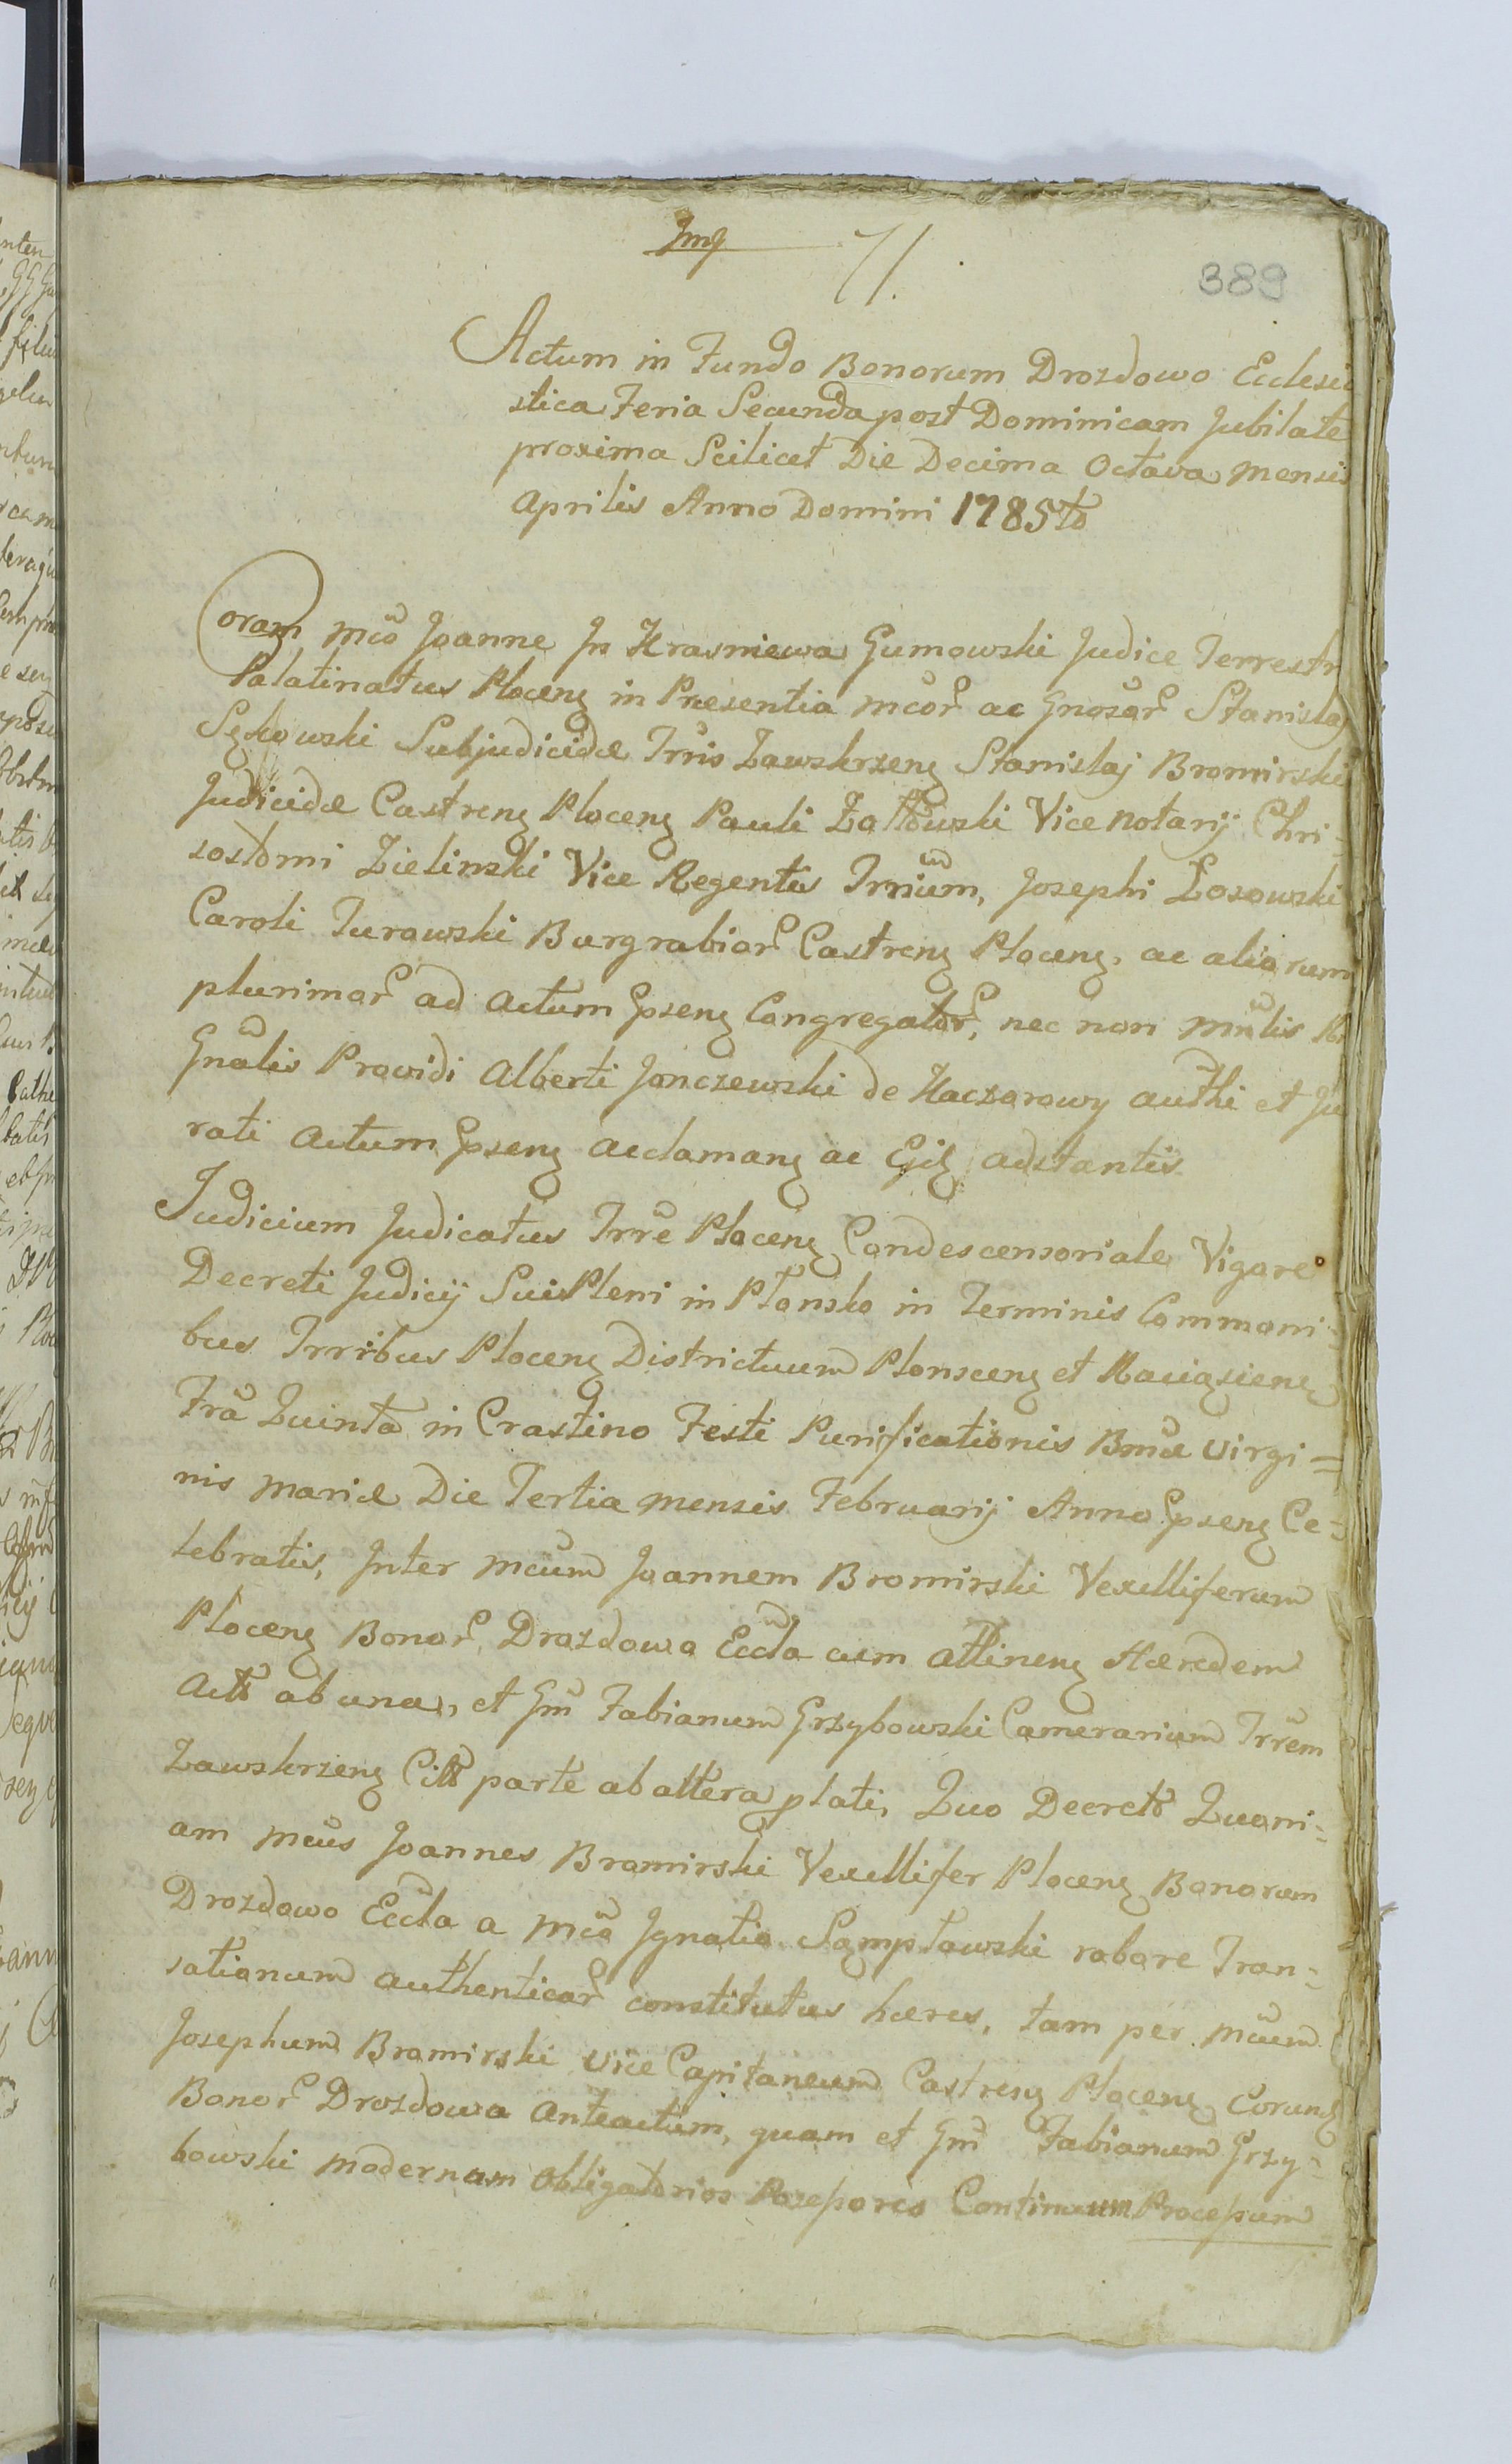 71.
389
Actum in Fundo Bonorum Drozdowo Ecclesia
stica Feria Secunda post Dominicam Jubilate
proxima Scilicet Die Decima Octava mensis
Aprilis Anno Domini 1785to
Coram mco Joanne In Krasniewo Gumowski Judice Terrestri
Palatinatus Plocen in Presentia mcor ac Gnosor Stanislaj
Sękowski Subjudicidæ Trris Zawskrzen Stanislaj Bromirski
Judicidæ Castren Plocen Pauli Żółtowski Vice notarij Chri-
sostomi Zielinski Vice Regentis Trrium, Josephi Łosowski
Caroli Turowski Burgrabior Castren Plocen, ac aliorum
plurimor ad actum psen Congregator, nec non mnlis
Gnalis Providi Alberti Jonczewski de Kaczorowy authi et Ju
rati actum psen acclaman ac Ejq adstantis
Judicium Judicatus Trre Plocen Condescensoriale Vigore
Decreti Judicij Sui Pleni in Płonsko in Terminis Communi-
bus Trribus Plocen Districtuum Plonscen et Raciązien
Fra Quinta in Crastino Festi Purificationis Bmæ Virgi=
nis mariæ Die Tertia mensis Februarij Anno psen Ce-
lebratis, Inter mcum Joannem Bromirski Vexilliferum
Plocen Bonor Drozdowo Eccla cum attinen Hæredem
Act ab una, et Gm Fabianum Grzybowski Camerarium Trrem
Zawskrzen Citt parte ab altera plati, Quo Decreto Quoni-
am mcus Joannes Bromirski Vexillifer Plocen Bonorum
Drozdowo Eccla a mco Ignatio Sąmpławski robore Tran-
sationum authenticar constitutus hæres, tam per mcum
Josephum Bromirski Vice Capitaneum Castren Plocen Corund
Bonor Drozdowo Anteactum, quam et Gm Fabianum Grzy-
bowski modernum Obligatorios Possessores Continuum Processum